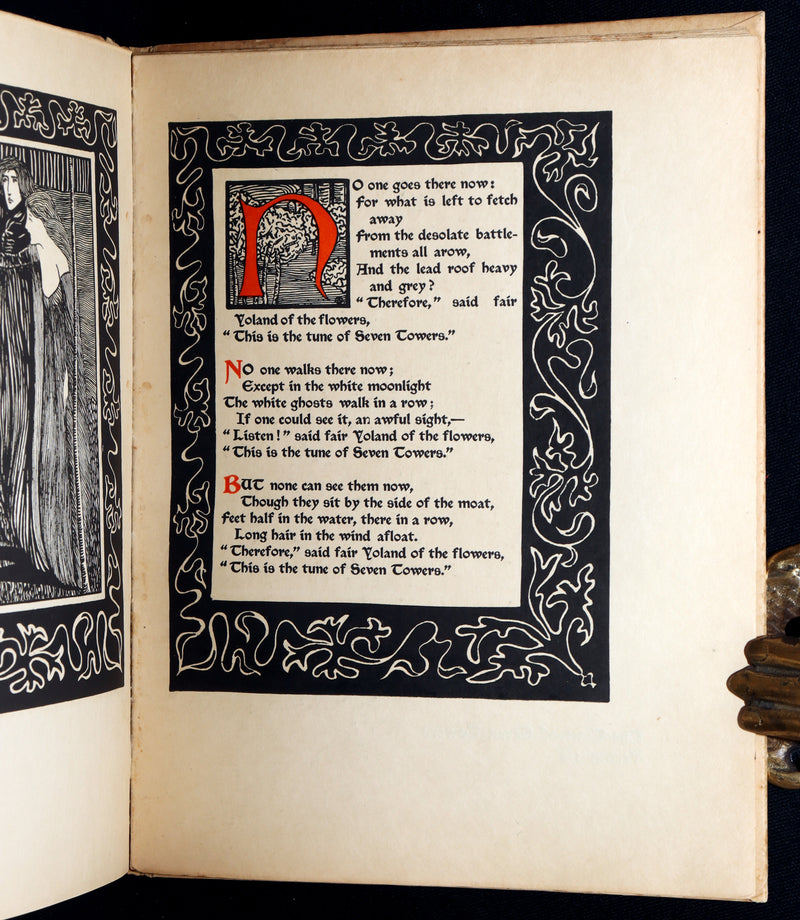 NO one goes there now:
For what is left to fetch
away
From the desolate battle-
ments all arow,
And the lead roof heavy
and grey?
“Therefore,” said fair
Yoland of the flowers,
“This is the tune of Seven Towers.”
NO one walks there now;
Except in the white moonlight
The white ghosts walk in a row;
If one could see it, an awful sight,—
“Listen!” said fair Yoland of the flowers,
“This is the tune of Seven Towers.”
BUT none can see them now,
Though they sit by the side of the moat,
Feet half in the water, there in a row,
Long hair in the wind afloat.
“Therefore,” said fair Yoland of the flowers,
“This is the tune of Seven Towers.”